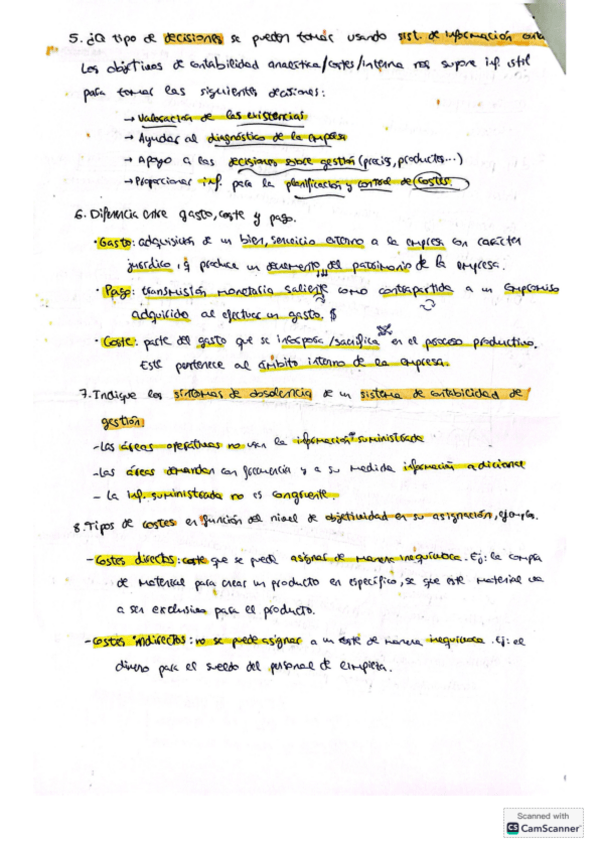 5. ¿Q tipo de decisiones se pueden tomar usando sist. de información
Los objetivos de contabilidad analítica/costes/interna nos supone inf. útil
para tomar las siguientes decisiones:
→ Valoración de las existencias
→ Ayudar al diagnóstico de la empresa
→ Apoyo a las decisiones sobre gestión (precios, productos...)
→ Proporcionar inf. para la planificación y control de costes.
6. Diferencia entre gasto, coste y pago.
· Gasto: adquisición de un bien, servicio externo a la empresa con carácter
jurídico, q produce un decremento del patrimonio de la empresa.
· Pago: transmisión monetaria saliente como contrapartida a un compromiso
adquirido al efectuar un gasto. $
· Coste: parte del gasto que se incorpora/sacrifica en el proceso productivo.
Este pertenece al ámbito interno de la empresa.
7. Indique los síntomas de obsolencia de un sistema de contabilidad de
gestión:
- Las áreas operativas no usan la información suministrada
- Las áreas demandan con frecuencia y a su medida información adicional
- La inf. suministrada no es congruente.
8. Tipos de costes en función del nivel de objetividad en su asignación, ejemplos.
- Costes directos: coste que se puede asignar de manera inequívoca. Ej: la compra
de material para crear un producto en específico, se que este material va
a ser exclusivo para el producto.
- Costes indirectos: no se puede asignar a un coste de manera inequívoca. Ej: el
dinero para el sueldo del personal de limpieza.
Scanned with
CS CamScanner